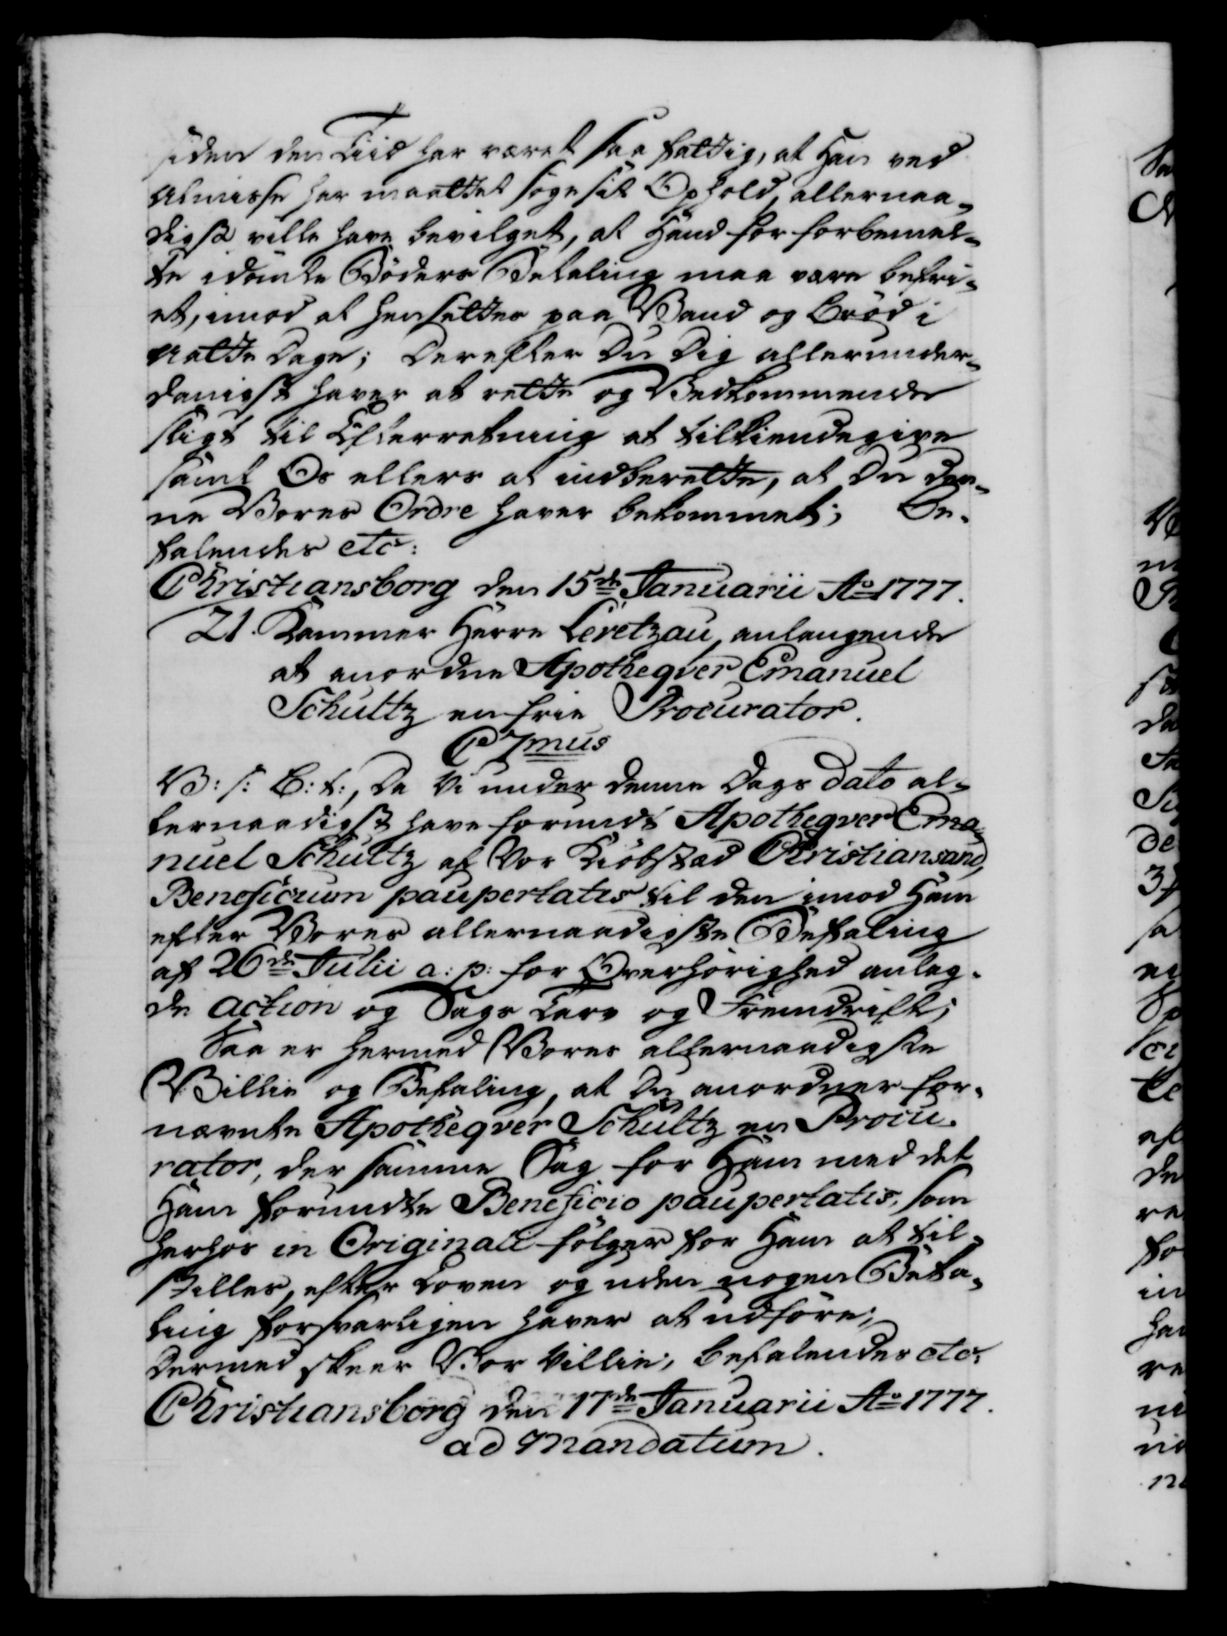 siden den Tiid har været saa fattig, at Han ved
Almisse har maattet søge sit Ophold, allernaa-
digst ville have bevilget, at Hand for forbemel-
te idømte Bøders Betaling maa være befri-
et, imod at hensættes paa Vand og Brød i
Aatte Dage; Derefter Du Dig allerunder-
danigst haver at rette og Vedkommende
sligt til Efterretning at tilkiendegive
samt Os ellers at indberette, at Du den-
ne Vores Ordre haver bekommet; Be-
falendes etc:
Christiansborg den 15de Januarii Ao 1777.
21. Kammer Herre Levetzau, anlangende
at anordne Apotheqver Emanuel
Schultz en frie Procurator.
C 7mus
V: s: G: t:, Da Vi under denne Dags dato al-
lernaadigst have forundt Apotheqver Ema-
nuel Schultz af Vor Kiøbstad Christiansand,
Beneficium paupertatis til den imod Ham
efter Vores allernaadigste Befaling
af 26de Julii a: p: for Overhørighed anlag-
de action og Sags Tarv og Fremdrift;
Saa er hermed Vores allernaadigste
Villie og Befaling, at Du anordner for-
nævnte Apotheqver Schultz en Procu-
rator, der samme Sag for Ham med det
Ham forundte Beneficio paupertatis, som
herhos in Originali følger for Ham at til-
stilles, efter Loven og uden nogen Beta-
ling forsvarligen haver at udføre;
Dermed skeer Vor Villie, befalendes etc:
Christiansborg den 17de Januarii Ao 1777.
ad Mandatum.